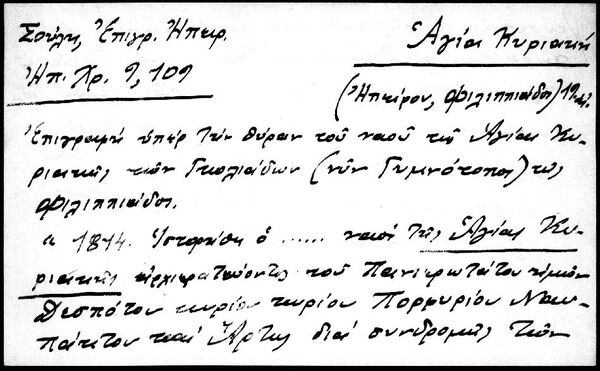 Σούλη, Ἐπιγρ. Ἠπειρ.
Ἠπ. Χρ. 9, 109
Ἁγία Κυριακή
(Ἠπείρου, Φιλιππιάδος)
Ἐπιγραφή ὑπέρ τήν θύραν τοῦ ναοῦ τῆς Ἁγίας Κυ-
ριακῆς τῶν Γκολιάδων (νῦν Γυμνότοπος) τῆς
Φιλιππιάδος.
« 1814. Ἱστορήθη ὁ ...... ναός τῆς Ἁγίας Κυ-
ριακῆς ἀρχιερατεύοντος τοῦ Πανιερωτάτου ἡμῶν
Δεσπότου κυρίου κυρίου Πορφυρίου Ναυ-
πάκτου καί Ἄρτης διά συνδρομῆς τῶν